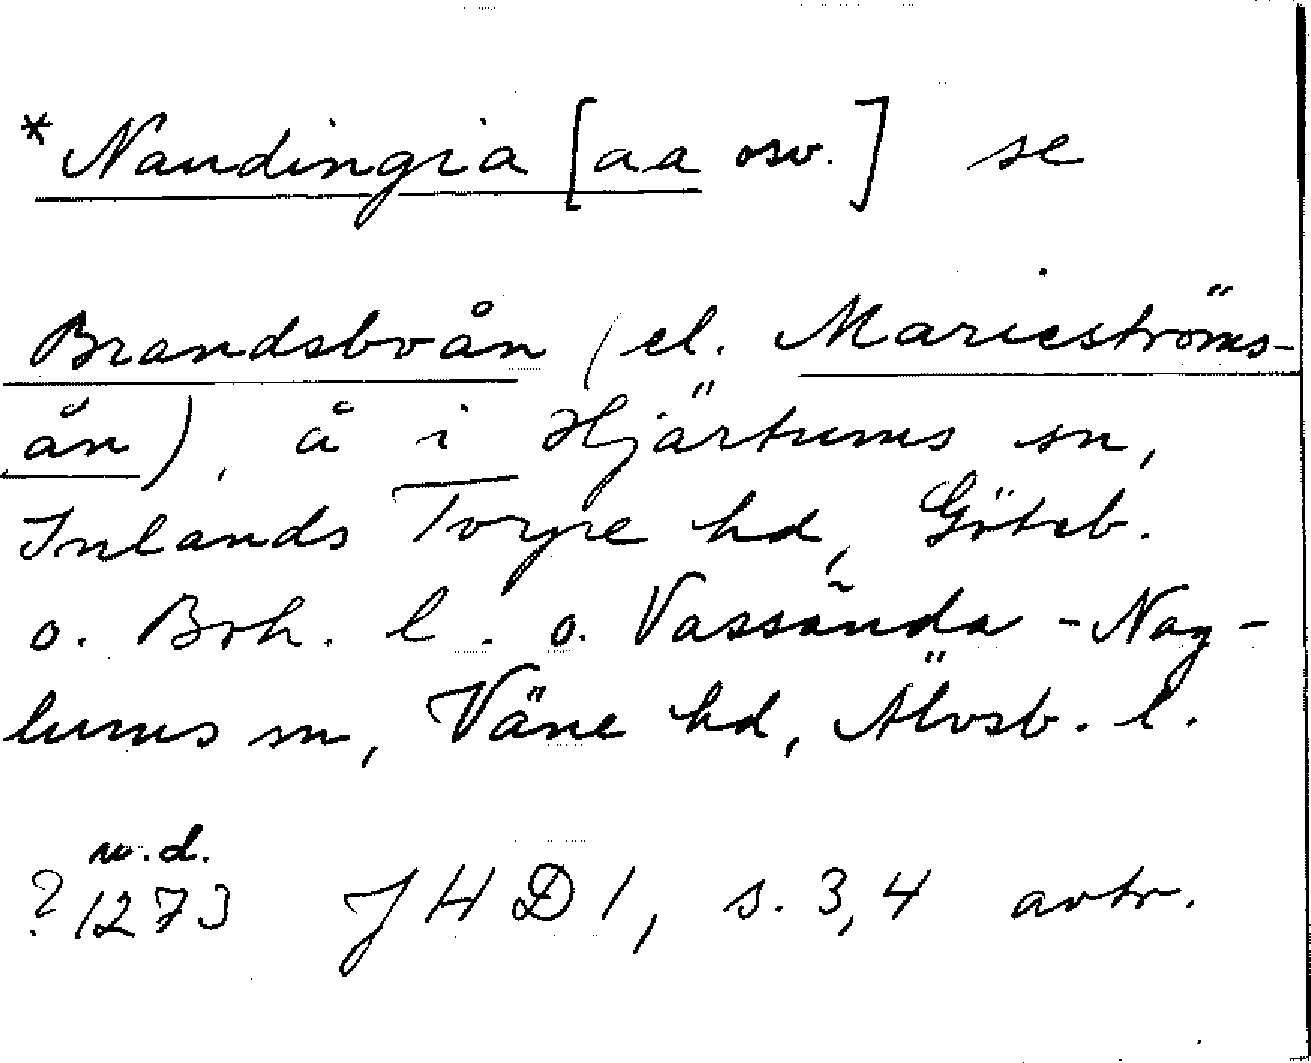 *Naudingia [aa osv.] se
Brandsboån (el. Marieströms-
ån), å i Hjärtums sn,
Inlands Torpe hd, Göteb.
o. Boh. l. o. Vassända-Nag-
lums sn, Väne hd, Älvsb. l.
w.d.
? 1273 JHD 1, s. 3,4 avtr.